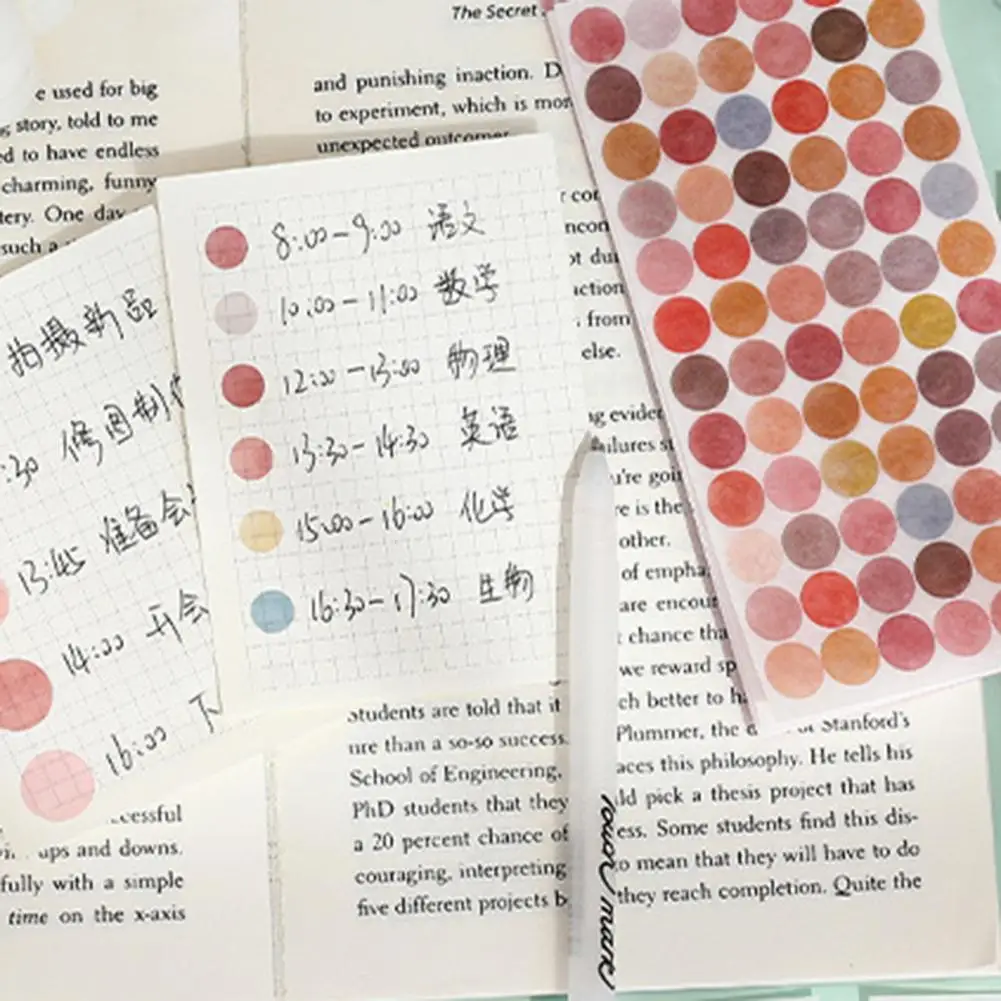 The Secret
e used for big
story, told to me
ed to have endless
charming, funny
tery. One day
such a
and punishing inaction. D
to experiment, which is mor
unexpected outcomer
r cor
ncon
ot dui
action
from
else.
ng evider
failures st
u're goin
re is the
other.
of empha
are encour
t chance tha
we reward sp
ch better to ha
8:00-9:00 语文
10:00-11:00 数学
12:00-13:00 物理
13:30-14:30 英语
15:00-16:00 化学
16:30-17:30 生物
拍摄新品
:30 修图制作
13:45 准备会
14:00 开会
16:00 下
students are told that it
ure than a so-so success.
School of Engineering,
PhD students that they
a 20 percent chance of
couraging, interpreting
five different projects b
Plummer, the d of Stanford's
aces this philosophy. He tells his
ld pick a thesis project that has
ess. Some students find this dis-
to mean that they will have to do
they reach completion. Quite the
cessful
ups and downs.
fully with a simple
time on the x-axis
Your mark